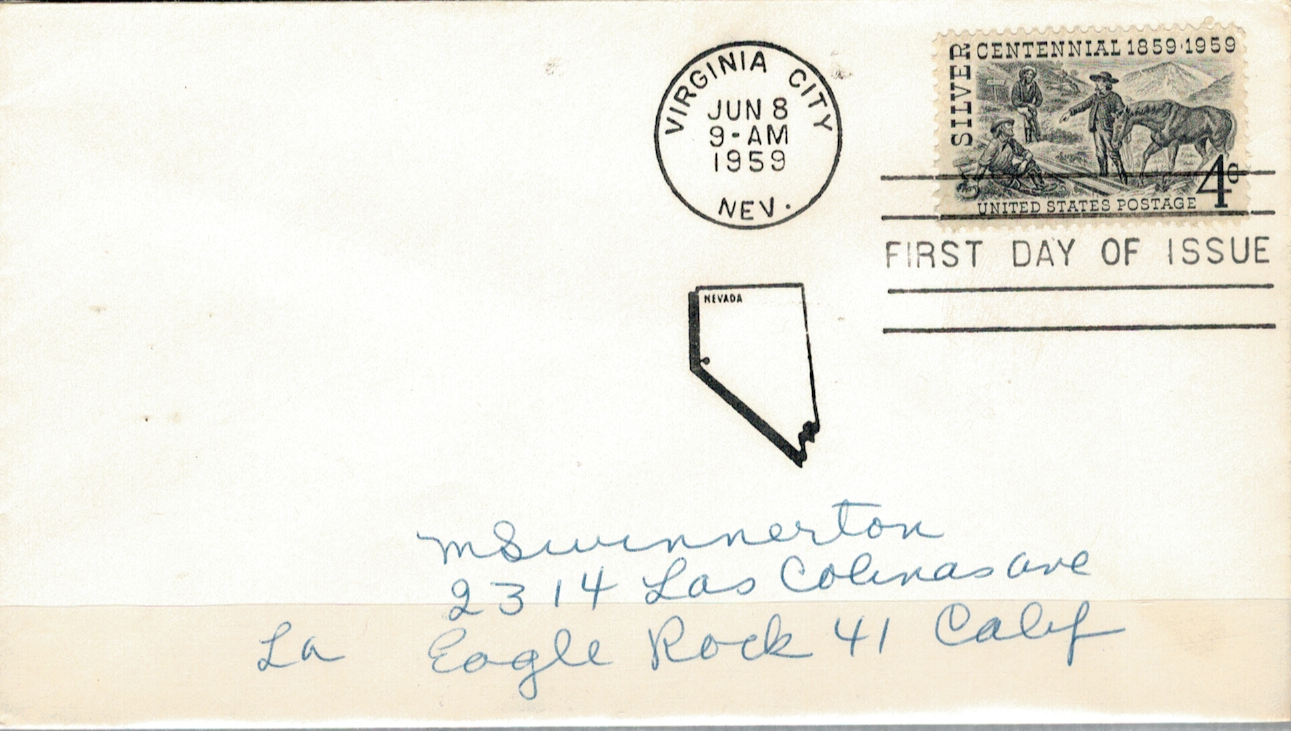 SILVER CENTENNIAL 1859·1959
4c
UNITED STATES POSTAGE
VIRGINIA CITY
JUN 8
9-AM
1959
NEV.
FIRST DAY OF ISSUE
NEVADA
M Swinnerton
2314 Las Colinas ave
La Eagle Rock 41 Calif